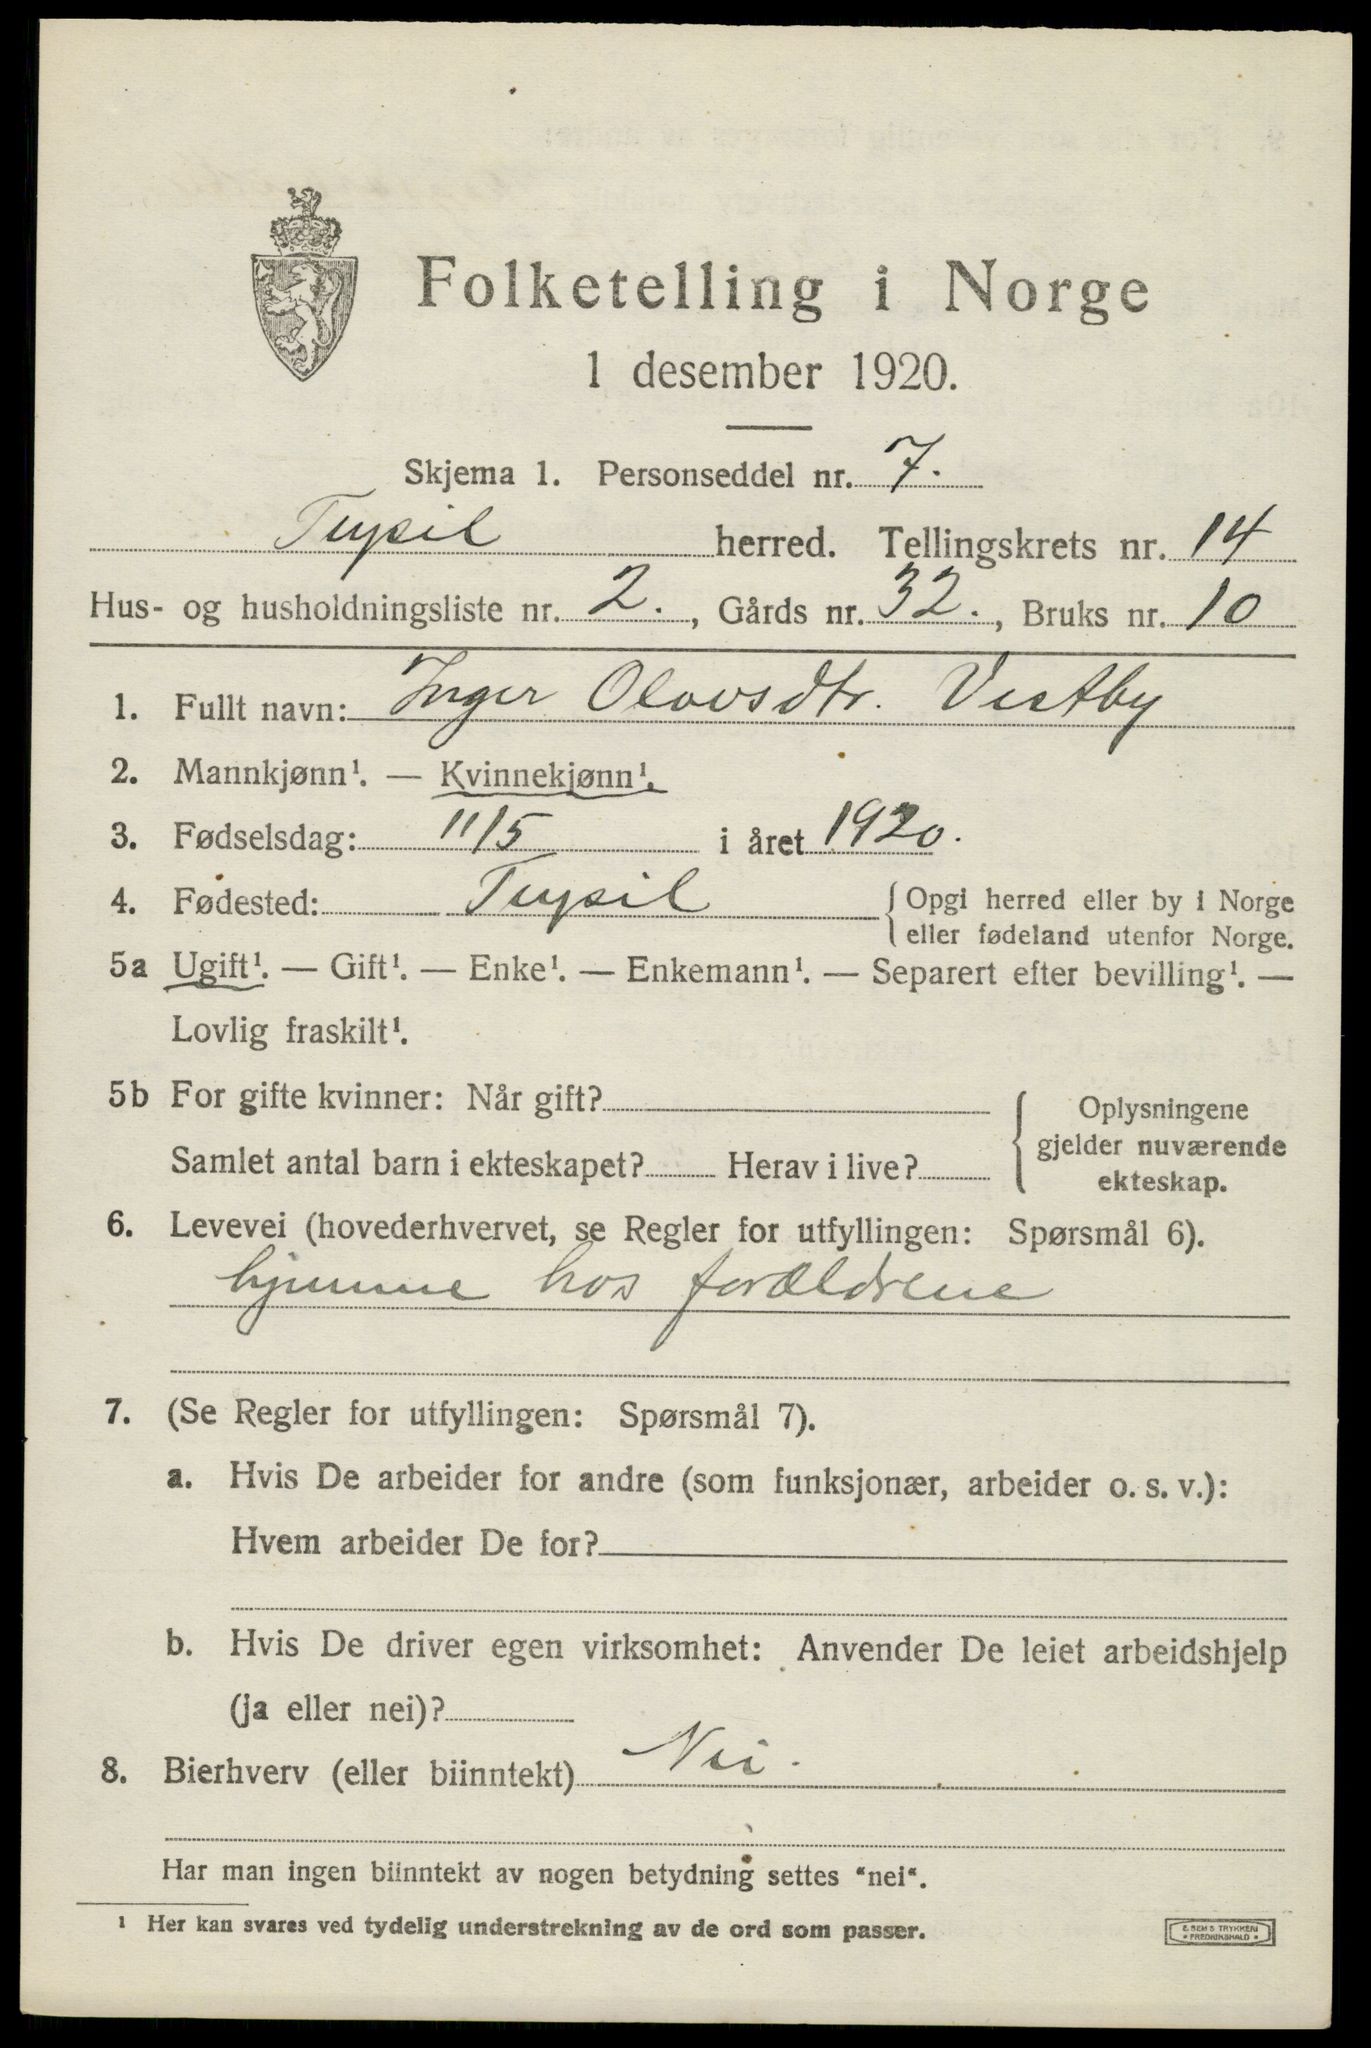 Folketelling i Norge
1 desember 1920.
Skjema 1. Personseddel nr. 7.
Trysil herred. Tellingskrets nr. 14
Hus- og husholdningsliste nr. 2., Gårds nr. 32., Bruks nr. 10
1. Fullt navn: Inger Olovsdtr. Vestby
2. Mannkjønn¹. — Kvinnekjønn¹.
3. Fødselsdag: 11/5 i året 1920.
4. Fødested: Trysil {Opgi herred eller by i Norge
eller fødeland utenfor Norge.
5a Ugift¹. — Gift¹. — Enke¹. — Enkemann¹. — Separert efter bevilling¹. —
Lovlig fraskilt¹.
5b For gifte kvinner: Når gift?
Samlet antal barn i ekteskapet? Herav i live?
{Oplysningene
gjelder nuværende
ekteskap.
6. Levevei (hovederhvervet, se Regler for utfyllingen: Spørsmål 6).
hjemme hos forældrene
7. (Se Regler for utfyllingen: Spørsmål 7).
a. Hvis De arbeider for andre (som funksjonær, arbeider o. s. v.):
Hvem arbeider De for?
b. Hvis De driver egen virksomhet: Anvender De leiet arbeidshjelp
(ja eller nei)?
8. Bierhverv (eller biinntekt) Nei.
Har man ingen biinntekt av nogen betydning settes "nei".
¹ Her kan svares ved tydelig understrekning av de ord som passer.
E. SEM S TRYKKERI
FREDRIKSHALD